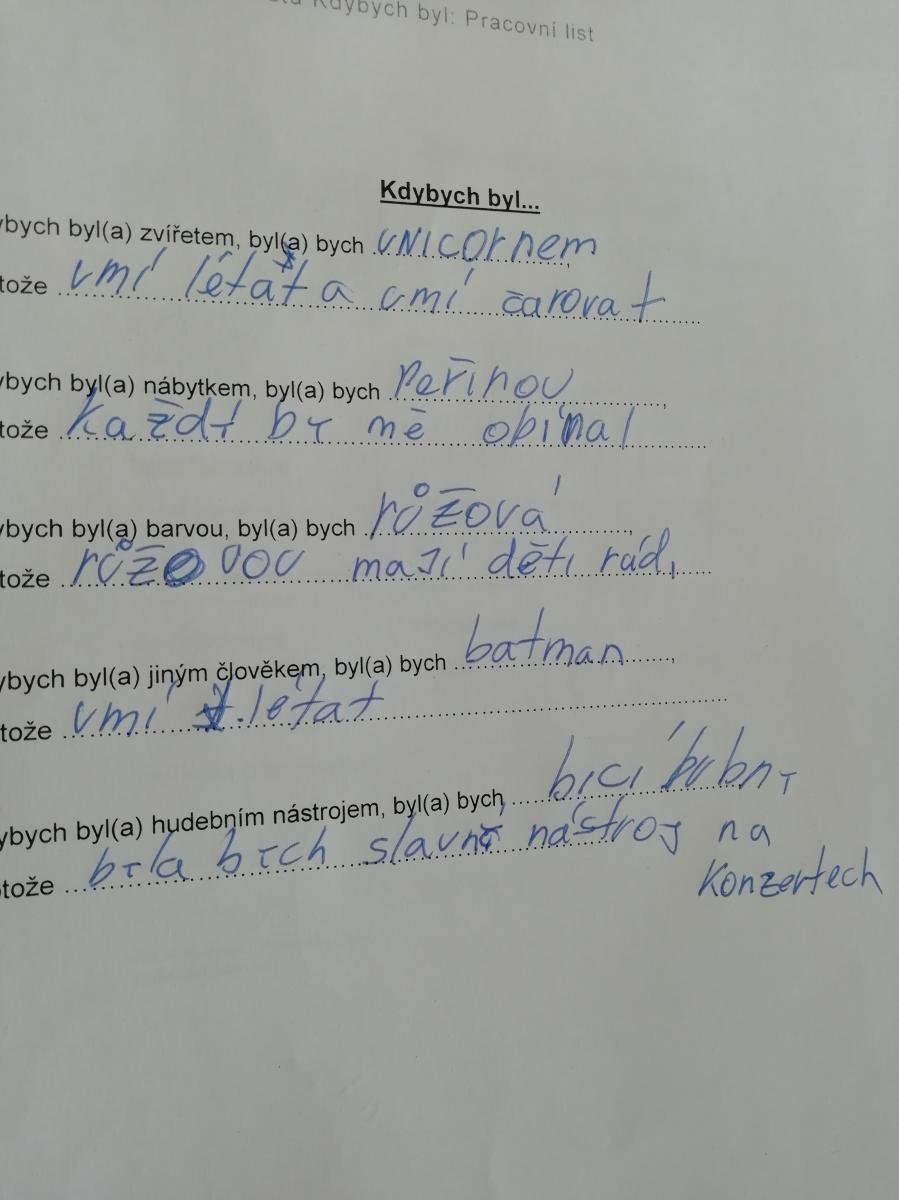 Kdybych byl: Pracovní list
Kdybych byl...
ybych byl(a) zvířetem, byl(a) bych unicornem,
tože umí létat a umí čarovat
ybych byl(a) nábytkem, byl(a) bych Peřinou,
tože každy by mě obímal
ybych byl(a) barvou, byl(a) bych růžová,
tože růžovou mají děti rádi
ybych byl(a) jiným člověkem, byl(a) bych batman,
tože umí létat
ybych byl(a) hudebním nástrojem, byl(a) bych bicí bubny
otože byla bych slavny nástroj na
Konzertech